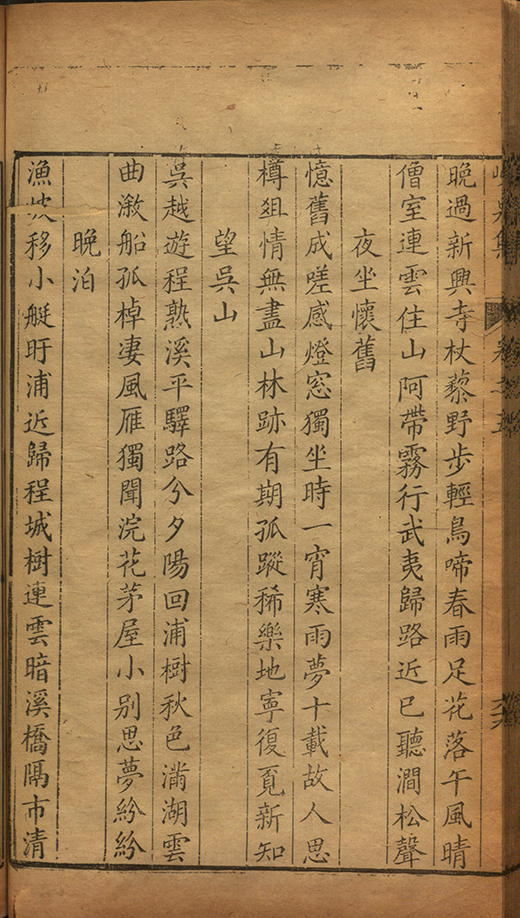 晚過新興寺杖藜野步輕鳥啼春雨足花落午風晴
僧室連雲住山阿帶霧行武夷歸路近已聽澗松聲
夜坐懷舊
憶舊成嗟感燈窓獨坐時一宵寒雨夢十載故人思
樽俎情無盡山林跡有期孤蹤稀樂地寧復覓新知
望吳山
吳越遊程熟溪平驛路分夕陽回浦樹秋色滿湖雲
曲漵船孤棹凄風雁獨聞浣花茅屋小別思夢紛紛
晚泊
漁坡移小艇盱浦近歸程城樹連雲暗溪橋隔市清